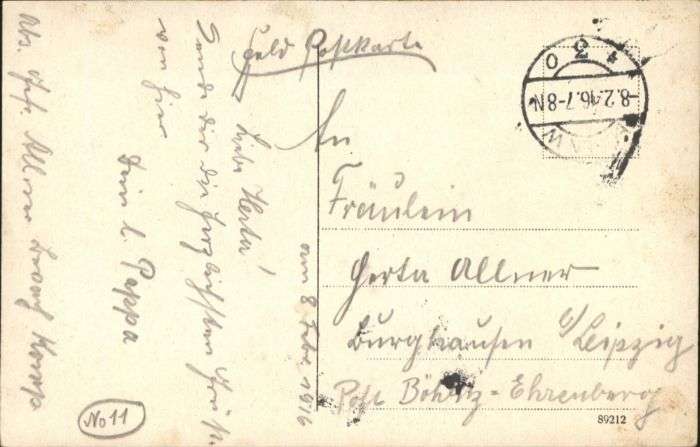 Feld Postkarte
am 8 Febr. 1916
Liebe Herta!
Sende dir die herzlichsten Grüße
von hier
Dein l. Pappa
Abs. Allner
No 11
An
Fräulein
Herta Allner
Burghausen b/Leipzig
Post Böhlitz-Ehrenberg
-8.2.16.7-8N
89212